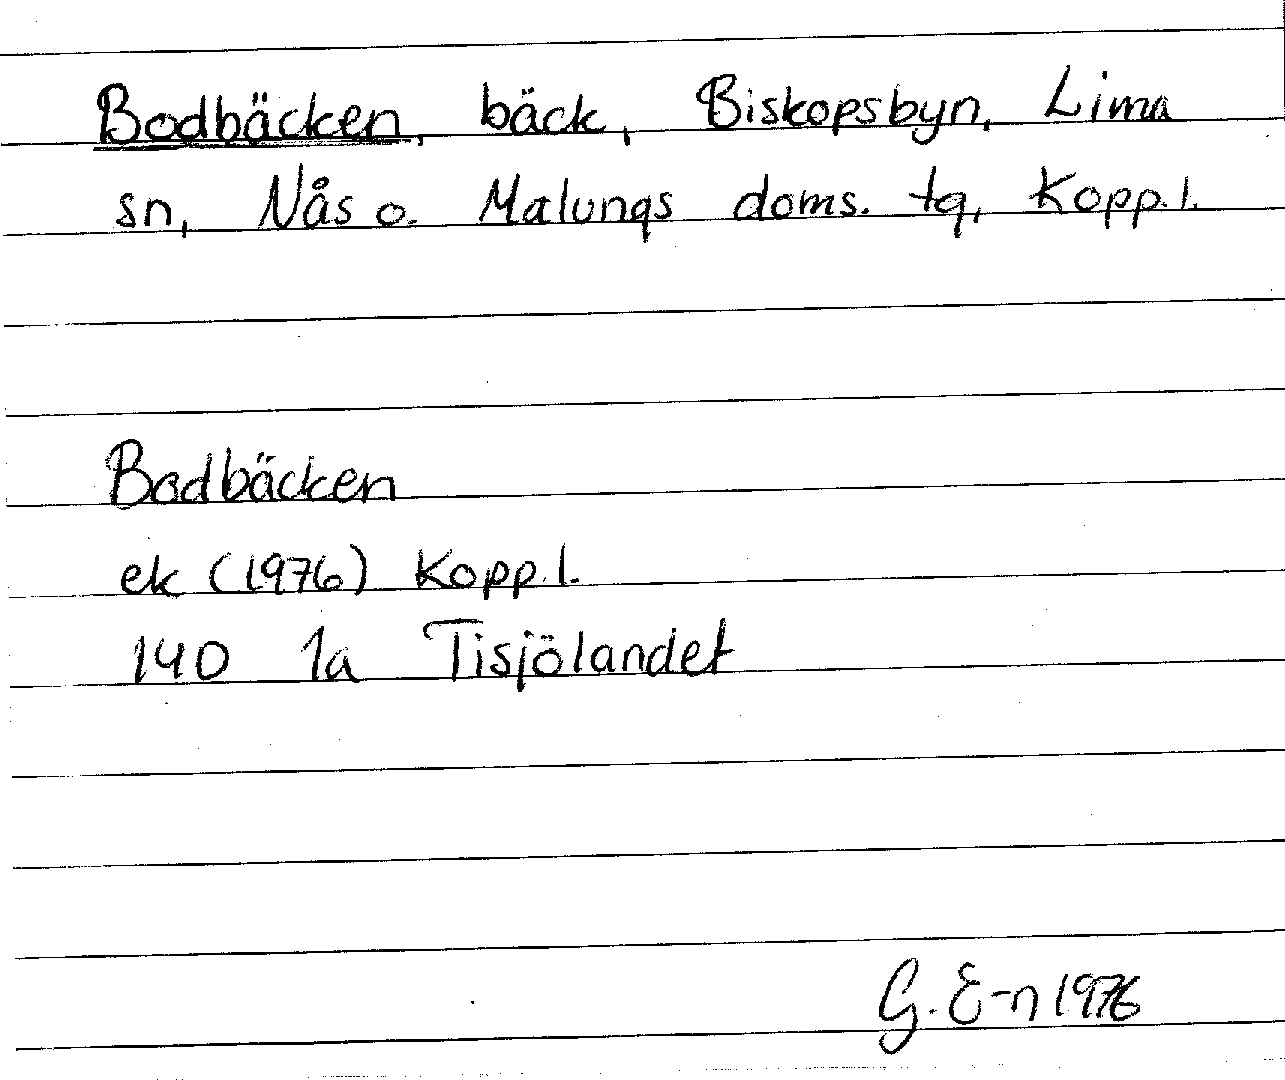 Bodbäcken, bäck, Biskopsbyn, Lima
sn, Nås o. Malungs doms. tg, Kopp.l.
Bodbäcken
ek (1976) Kopp.l.
140 1a Tisjölandet
G. E-n 1976